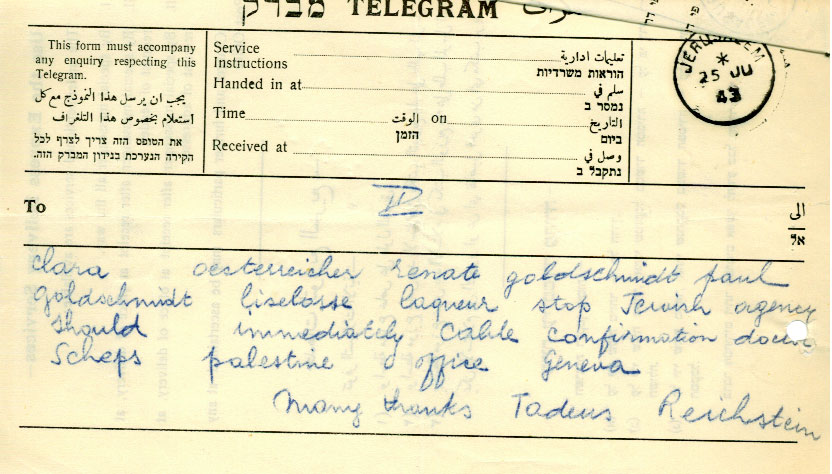 מברק TELEGRAM
This form must accompany
any enquiry respecting this
Telegram.
يجب ان يرسل هذا النموذج مع كل
استعلام بخصوص هذا التلغراف
את הטופס הזה צריך לצרף לכל
חקירה הנערכת בנידון המברק הזה.
Service
Instructions
تعليمات ادارية
הוראות משרדיות
Handed in at
سلم في
נמסר ב
Time الوقت on التاريخ
הזמן ביום
Received at
وصل في
נתקבל ב
JERUSALEM
25 JU
43
To II الى
אל
clara oesterreicher renate goldschmidt paul
goldschmidt liselorse laqueur stop Jewish agency
should immediately cable confirmation
Scheps palestine office Geneva
Many thanks Tadeus Reichstein